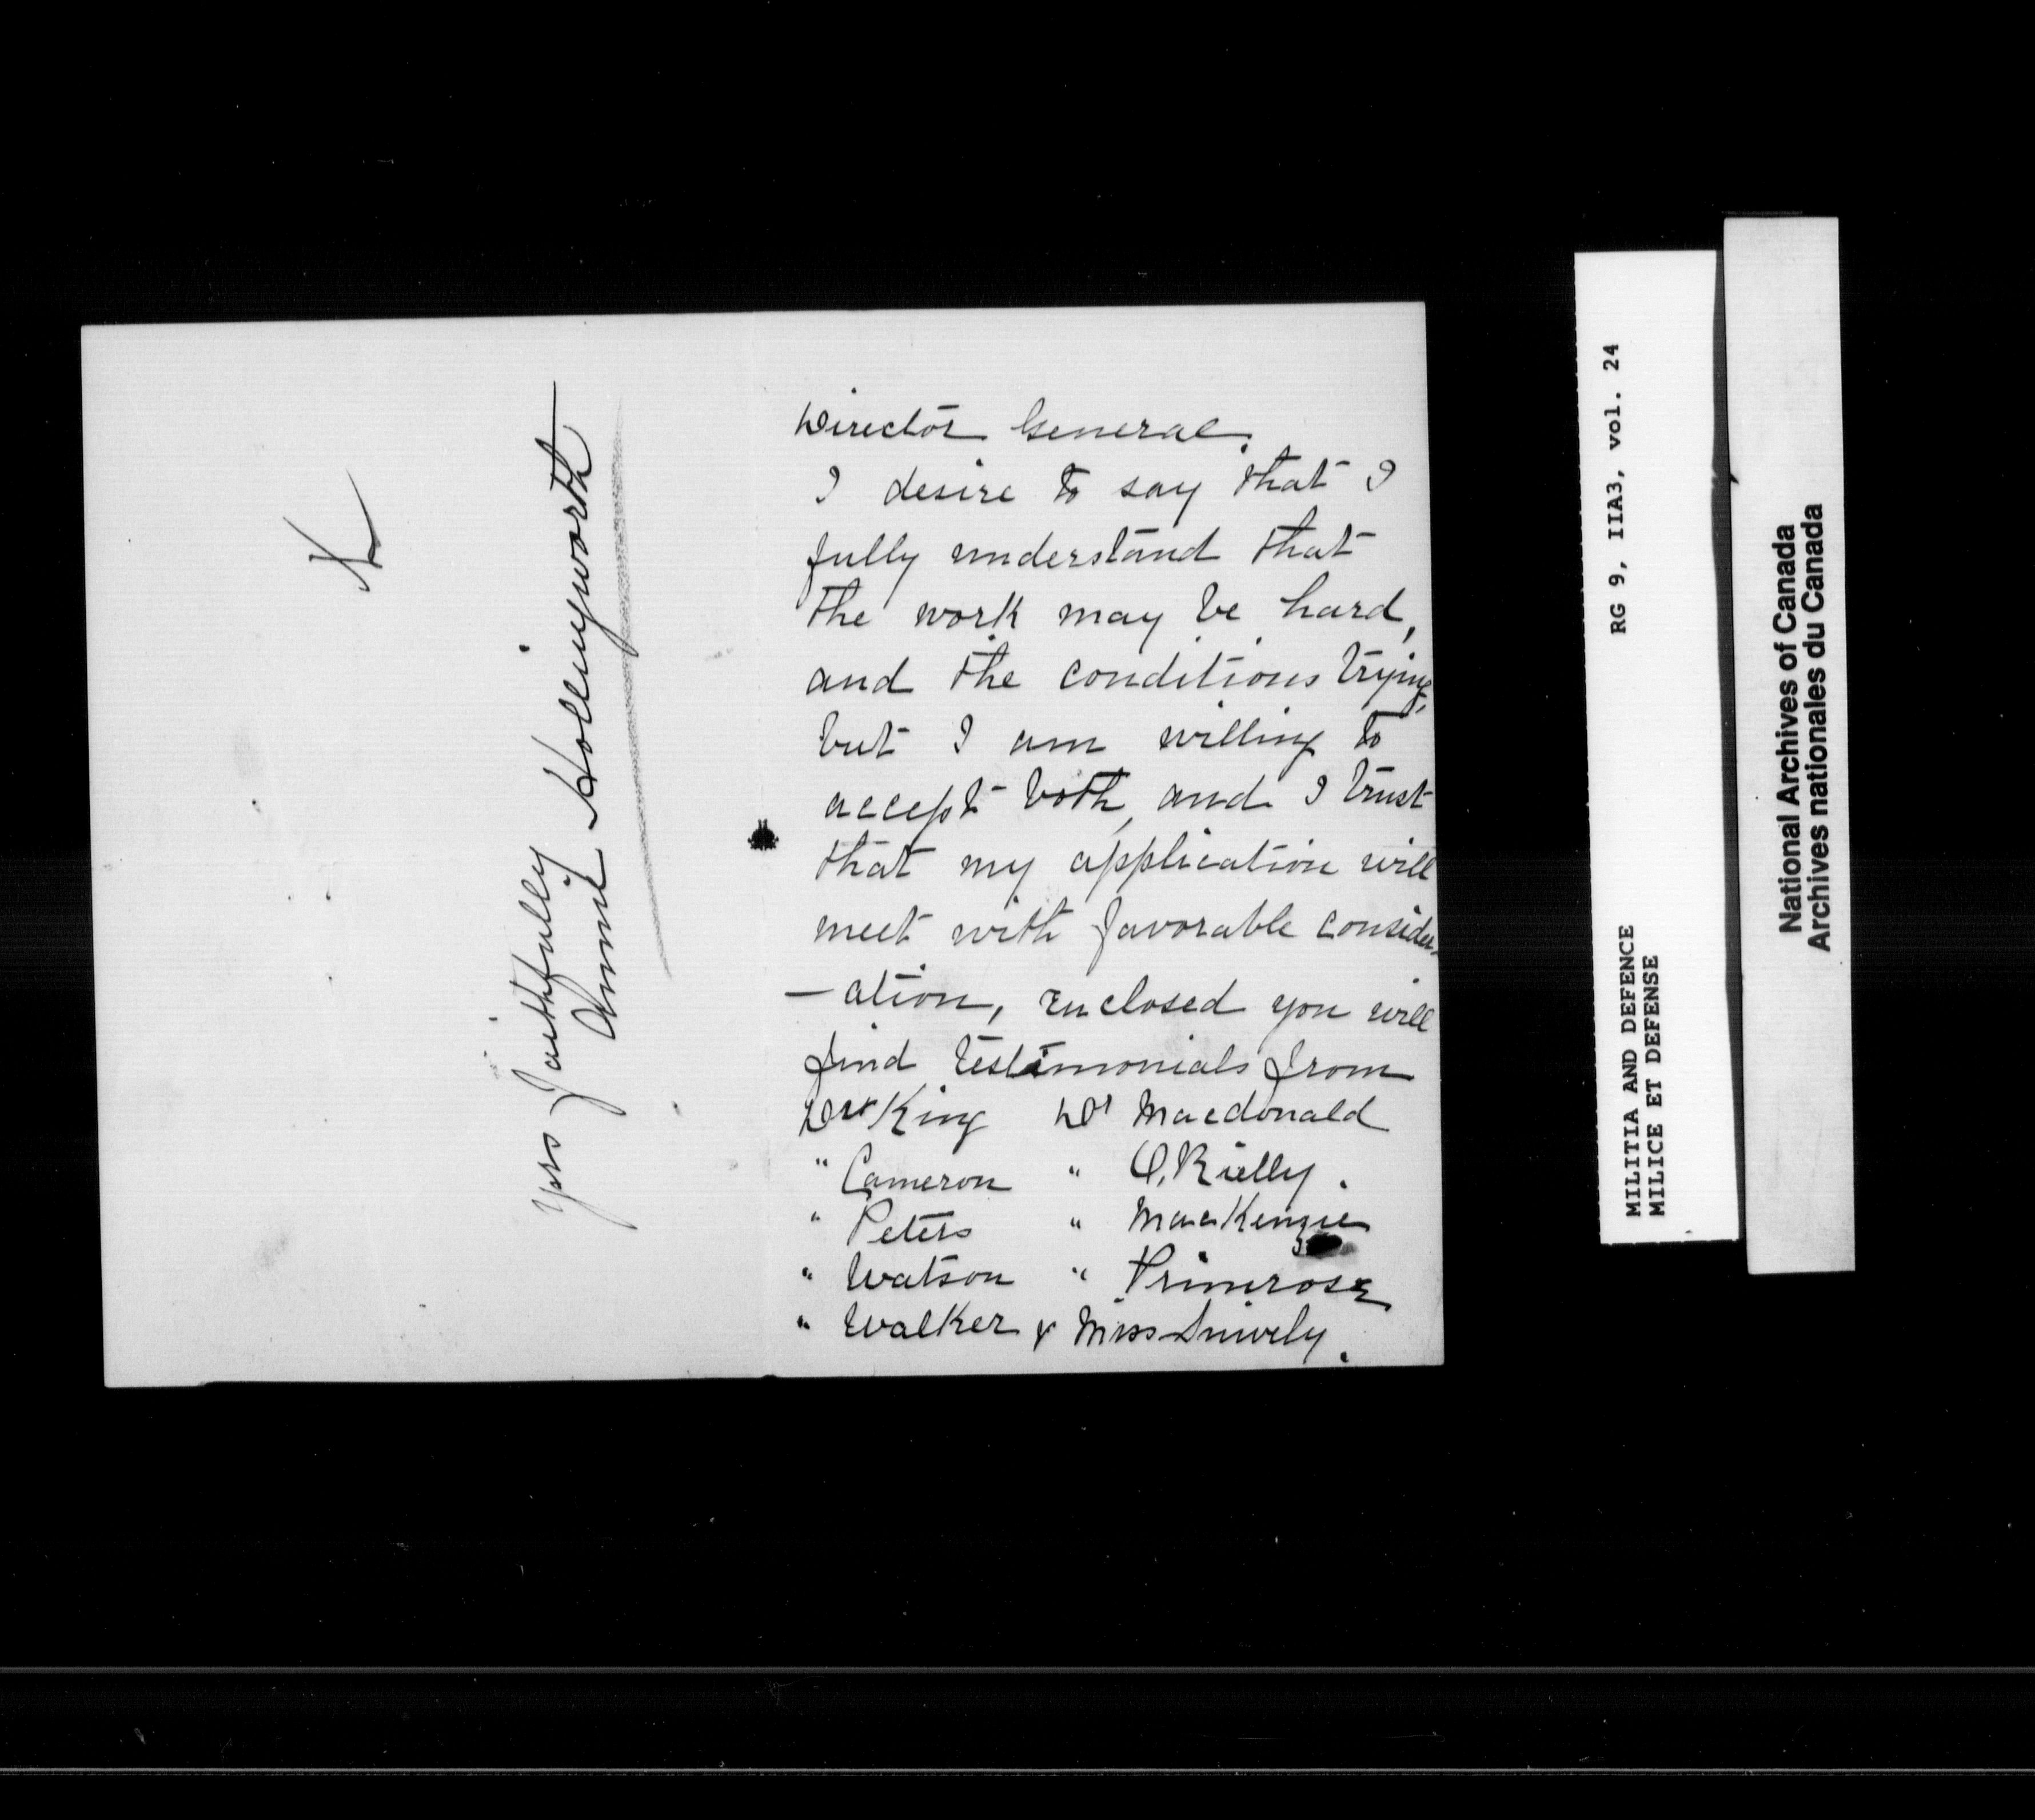 Director General.
I desire to say that I
fully understand that
the work may be hard,
and the conditions trying,
but I am willing to
accept both, and I trust
that my application will
meet with favorable consider
-ation, enclosed you will
find testimonials from
Dr King Dr Macdonald
" Cameron " O,Rielly.
" Peters " MacKenzie
" Watson " Primrose
" Walker & Miss Snively.
Yrs Faithfully
Annie Hollingworth
RG 9, IIA3, vol. 24
MILITIA AND DEFENCE
MILICE ET DEFENSE
National Archives of Canada
Archives nationales du Canada